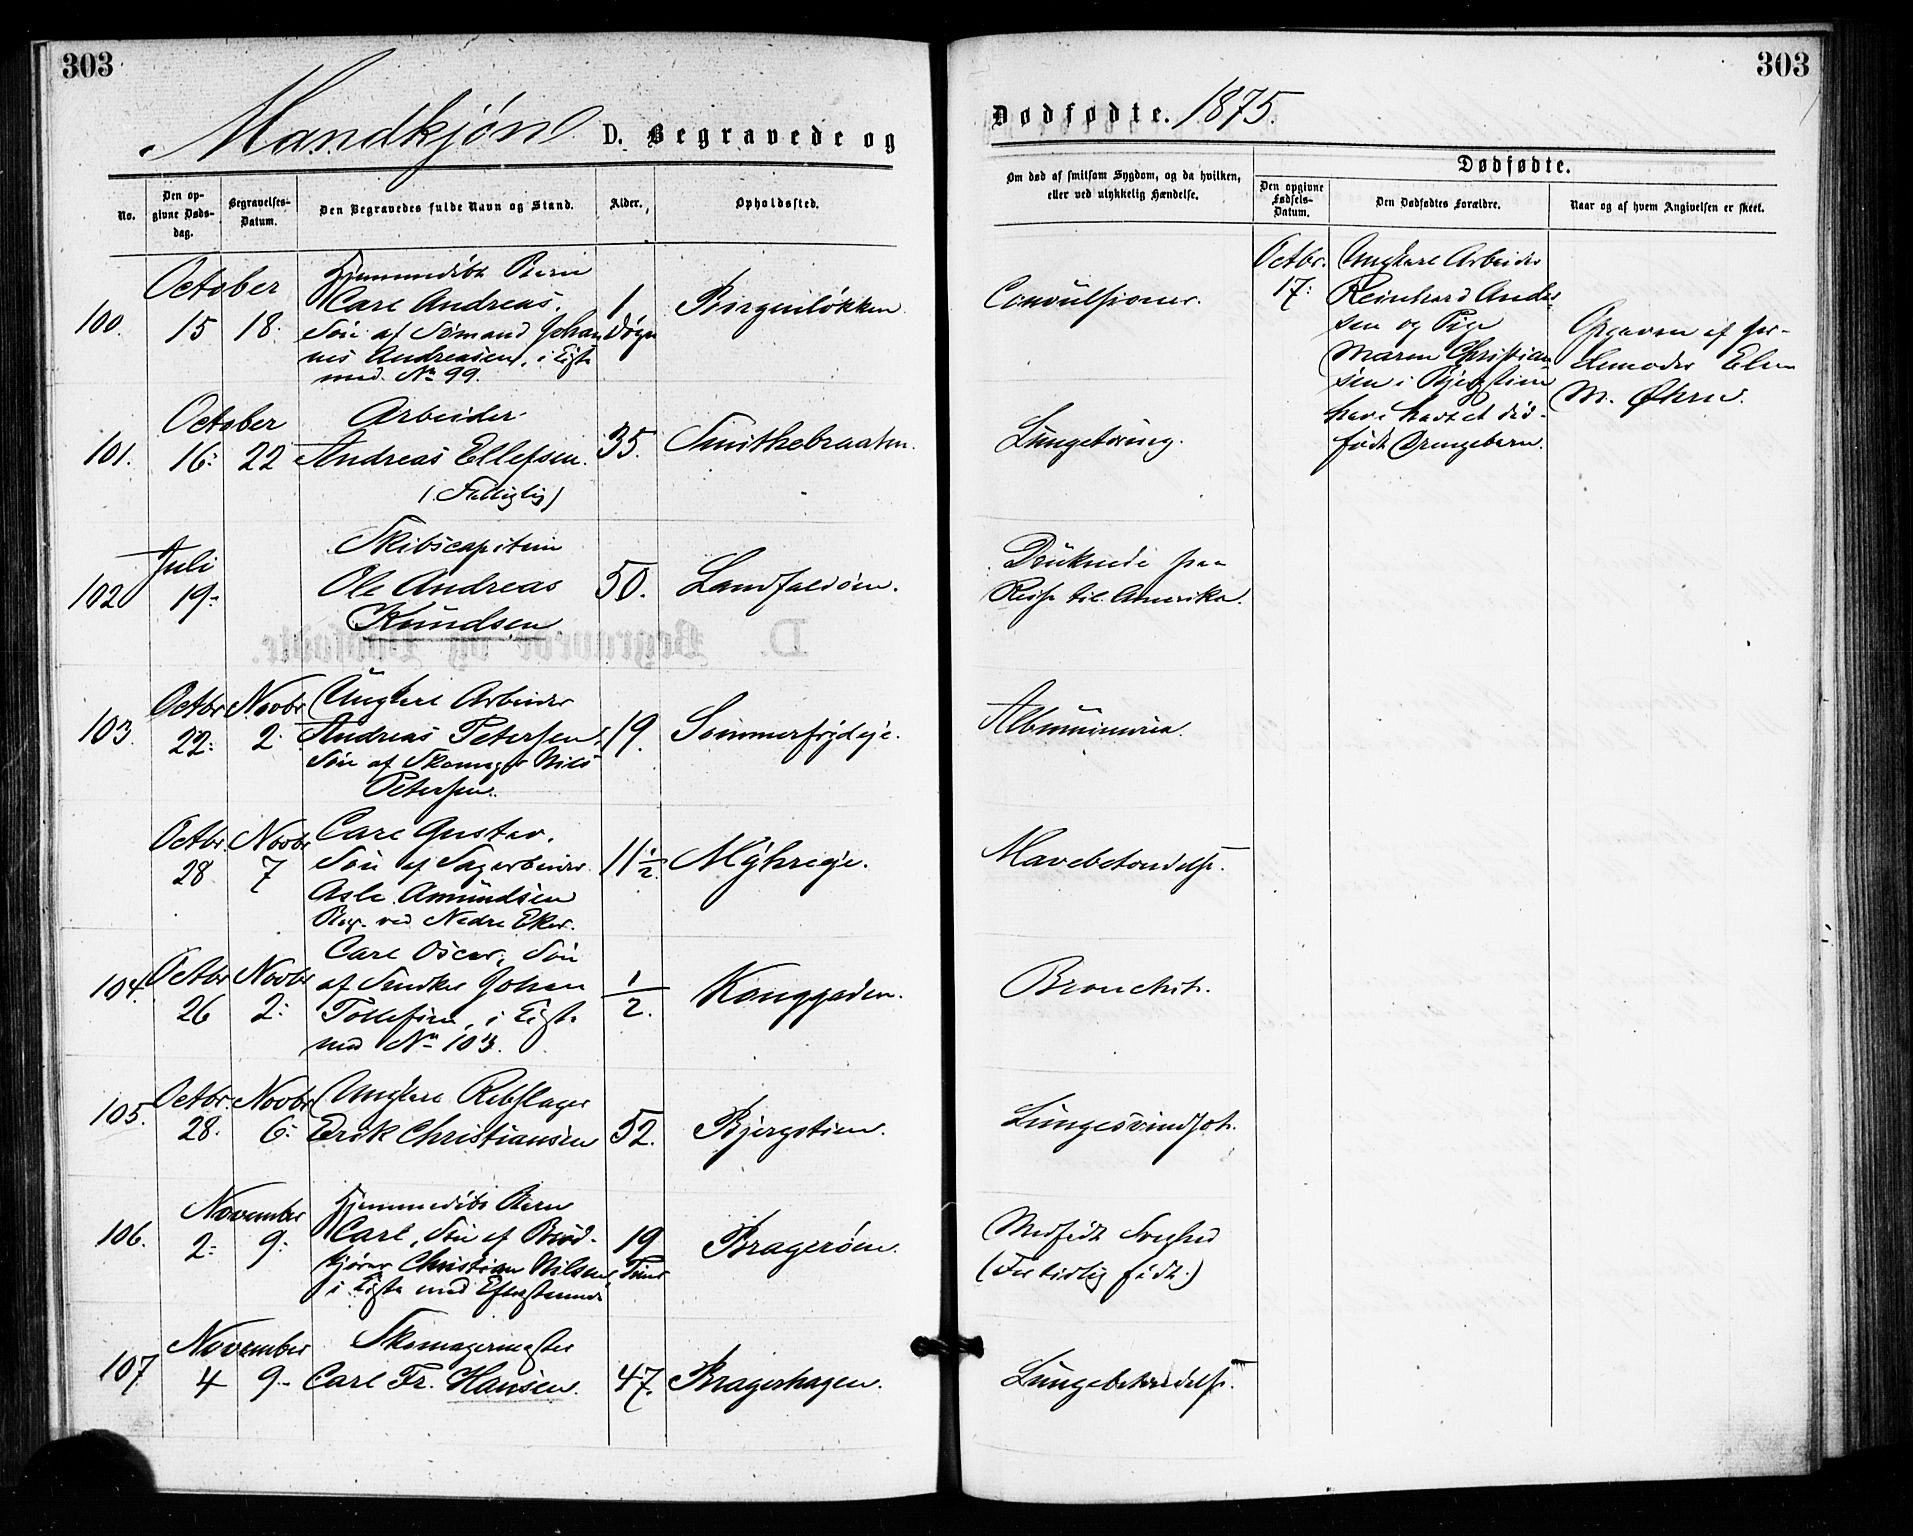 303
303
Mandkjøn D. Begravede og
Dødfødte. 1875.
No.
Den opgivne Dødsdag.
Begravelses-Datum.
Den Begravedes fulde Navn og Stand.
Alder.
Opholdssted.
Om død af smitsom Sygdom, og da hvilken, eller ved ulykkelig Hændelse.
Dødfødte.
Den opgivne Fødsels-Datum.
Den Dødfødtes Forældre.
Naar og af hvem Angivelsen er skeet.
100.
October
15 18.
Hjemmedøbt Barn
Carl Andreas,
Søn af Sømand Johan
nes Andreasen, i Eigte
med No 99.
1
Døgn
Convulsioner.
101.
October
16. 22
Arbeider
Andreas Ellefsen.
(Fattiglig)
35.
Smithebraaten.
102
Juli
19.
Skibscapitain
Ole Andreas
Knudsen
50.
Landfaldøen.
Druknede paa
Reise til Amerika.
D. Begravede og Dødfødte.
103.
Octbr. Novbr
22. 2.
Ungkarl Arbeider
Andreas Petersen,
Søn af Skomager Nils
Petersen.
19.
Sommerfrydeje.
Albuminuria.
Octbr. Novbr
28 7
Carl Gustav,
Søn af Sagarbeider
Asle Amundsen
Beg. ved Nedre Eker.
11 1/2
Myhreeje.
Mavebetændelse.
104.
Octbr Novbr
26 2.
Carl Oscar, Søn
af Snedker Johan
Tollefsen, i Eigte
med No 103.
1/2
Konggaden.
Bronchit.
105.
Octbr. Novbr
28. 6.
Ungkarl Rebslager
Erik Christiansen
52.
Bjergstien.
Lungesvindsot.
106.
November
2. 9.
Hjemmedøbt Barn
Carl, Søn af Brød-
kjører Christian Nilsen,
i Eigte med Efterstaaende
19
Timer
Bragerøen.
Medfødt Svaghed
(For tidlig født.)
107
November
4 9.
Skomagermester
Carl Fr. Hansen.
47.
Bragerhagen.
Lungebetændelse.
Octbr.
17.
Ungkarl Arbeider
Reinhard Ander-
sen og Pige
Maren Christian
sen i Bjergstien
have havt et død-
født Drengebarn.
Opgaven af Jor-
demoder Elen
M. Økern.